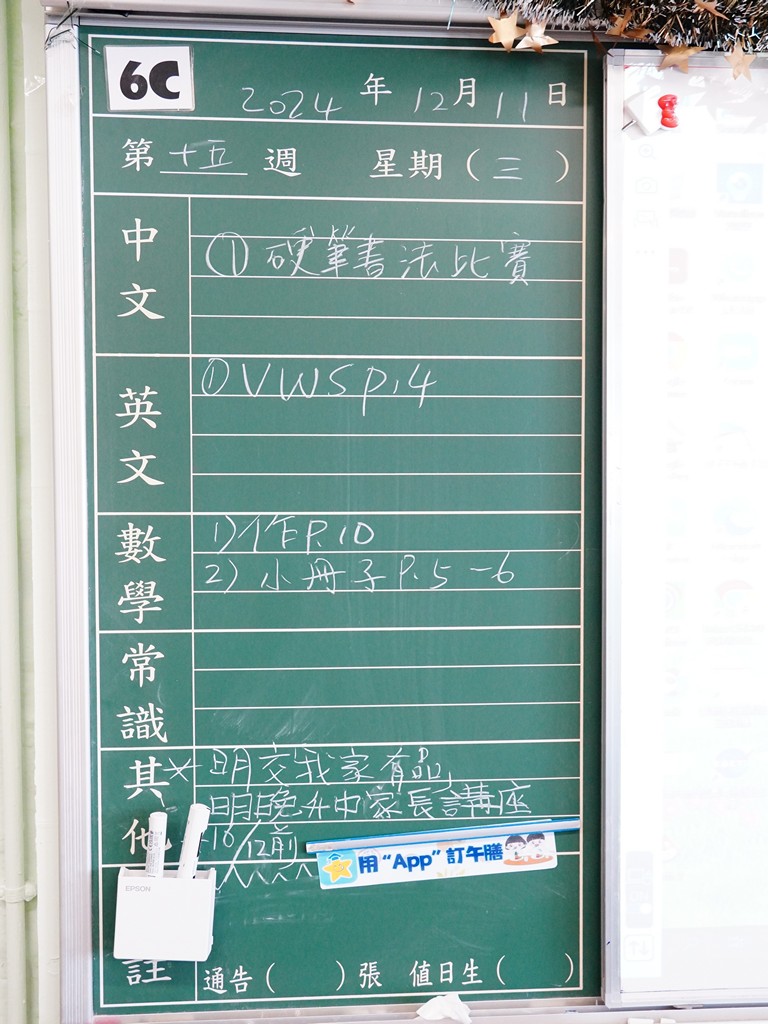 6C
2024 年 12月 11 日
第 十五 週 星期(三)
中文
① 硬筆書法比賽
英文
① VWS P.4
數學
1) 作 P.10
2) 小冊子 P.5-6
常識
其他
* 明交我家有品
明晚升中家長講座
16/12前
用“App”訂午膳
EPSON
註
通告( )張 值日生( )